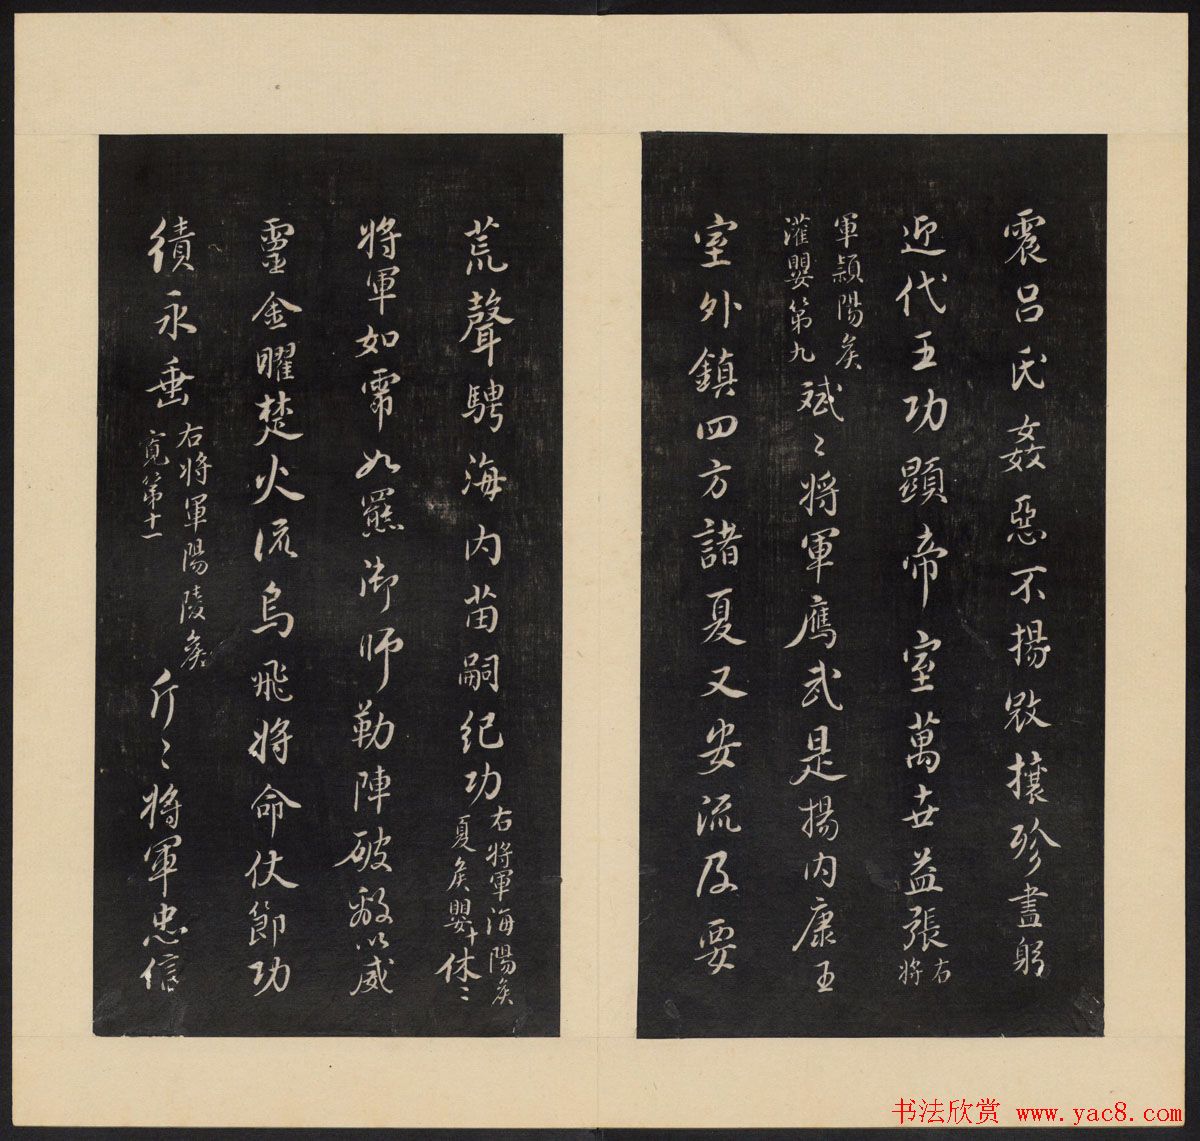 震呂氏姦惡不揚攘殄盡躬
迎代王功顯帝室萬世益張右將
軍潁陽侯灌嬰第九斌〻將軍鷹武是揚內康王
室外鎮四方諸夏乂安流及要
荒聲騁海內苗嗣紀功右將軍海陽侯夏侯嬰十休〻
將軍如雷如羆御師勒陣破敵以威
靈金曜楚火流烏飛將命仗節功
績永垂右將軍陽陵侯寬第十一斤〻將軍忠信
书法欣赏 www.yac8.com